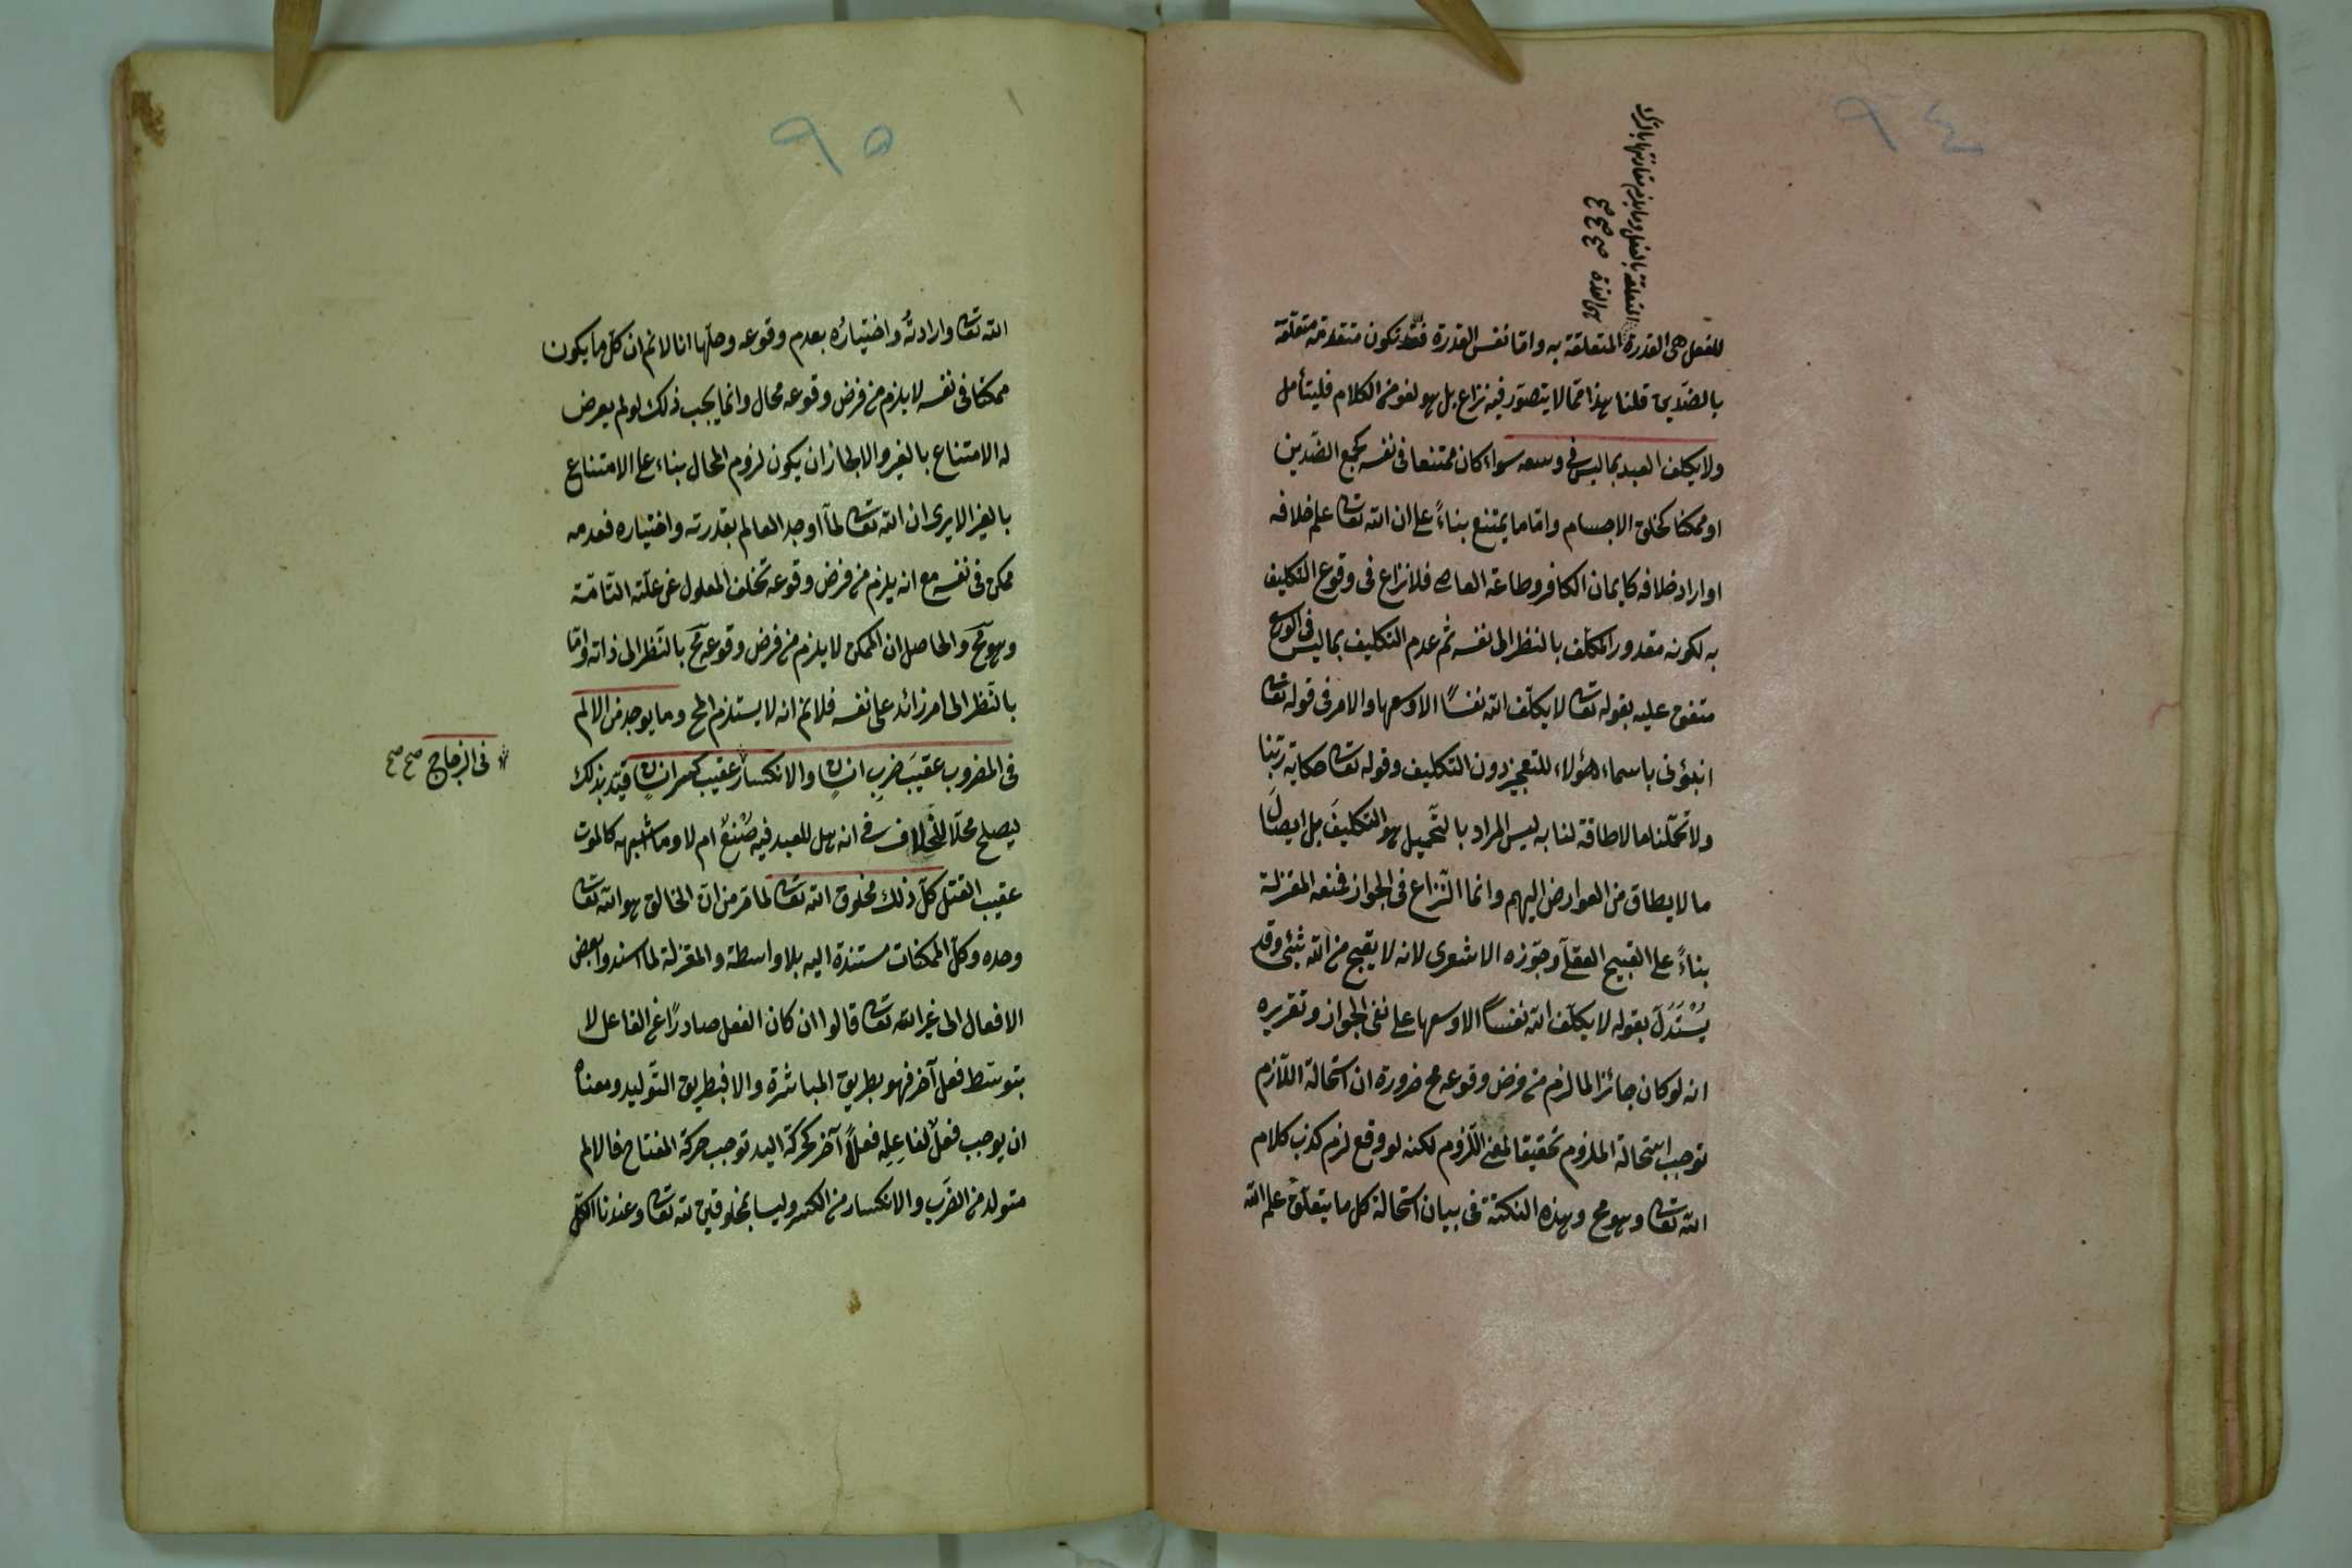 ٩٤
المتعلقة بالفعل وما يلزم مقارنتها بالترك
هى القدرة صح صح صح
للفعل هى القدرة المتعلقة به واما نفس القدرة فقد تكون متقدمة متعلقة
بالضدين قلنا هذا مما لا يتصور فيه نزاع بل هو لغو من الكلام فليتأمل
ولا يكلف العبد بما ليس فى وسعه سواء كان ممتنعا فى نفسه كجمع الضدين
او ممكنا كخلق الاجسام واما ما يمتنع بناءً على ان الله تعا علم خلافه
او اراد خلافه كايمان الكافر وطاعة العاصى فلا نزاع فى وقوع التكليف
به لكونه مقدور المكلف بالنظر الى نفسه ثم عدم التكليف بما ليس فى الوسع
متفق عليه بقوله تعا لا يكلّف الله نفسًا الا وسعها والامر فى قوله تعا
انبؤنى باسماء هؤلاء للتعجيز دون التكليف وقوله تعا حكاية ربّنا
ولا تحمّلنا ما لا طاقة لنا به ليس المراد بالتّحميل هو التكليفَ بل ايصالَ
ما لا يطاق من العوارض اليهم وانما النّزاع فى الجواز فمنعه المعتزلة
بناءً على القبيح العقلى وجوّزه الاشعرى لانه لا يقبح من الله شئ وقد
يُسْتَدَلّ بقوله لا يكلّف الله نفسًا الا وسعها على نفى الجواز وتقريره
انه لو كان جائزا لما لزم من فرض وقوعه مح ضرورة ان استحالة اللّازم
توجب استحالة الملزوم تحقيقا لمعنى اللّزوم لكنه لو وقع لزم كذب كلام
الله تعا وهو مح وهذه النكتة فى بيان استحالة كل ما يتعلّق علم الله
٩٥
الله تعا وارادتُه واختيارُه بعدم وقوعه وحلّها انا لا نم ان كلّ ما يكون
ممكنا فى نفسه لا يلزم من فرض وقوعه محال وانما يجب ذلك لو لم يعرض
له الامتناع بالغير والا لجاز ان يكون لزوم المحال بناء على الامتناع
بالغير الا يرى ان الله تعا لمّا اوجد العالم بقدرته واختياره فعدمه
ممكن فى نفسه مع انه يلزم من فرض وقوعه تخلف المعلول عن علّته التّامّة
وهو مح والحاصل ان الممكن لا يلزم من فرض وقوعه مح بالنّظر الى ذاته وامّا
بالنّظر الى امر زائد على نفسه فلا نم انه لا يستلزم المح وما يوجد من الالم
فى المضروب عقيبَ ضربِ انسانٍ والانكسار عقيب كسر انسانٍ قيّد بذلك
فى الزجاج صح صح
ليصلح محلّا للخلاف فى انه هل للعبد فيه صُنعٌ ام لا وما اشبهه كالموت
عقيب القتل كلّ ذلك مخلوق الله تعا لما مر من انّ الخالق هو الله تعا
وحده وكلّ الممكنات مستندة اليه بلا واسطة والمعتزلة لما اسندوا بعض
الافعال الى غير الله تعا قالوا ان كان الفعل صادرًا عن الفاعل لا
بتوسّط فعل آخر فهو بطريق المباشرة والا فبطريق التّوليد ومعناه
ان يوجب فعلٌ لفاعِلِه فعلًا آخر كحركة اليد توجب حركة المفتاح فالالم
متولد من الضّرب والانكسار من الكسر وليسا بمخلوقين لله تعا وعندنا الكلّ